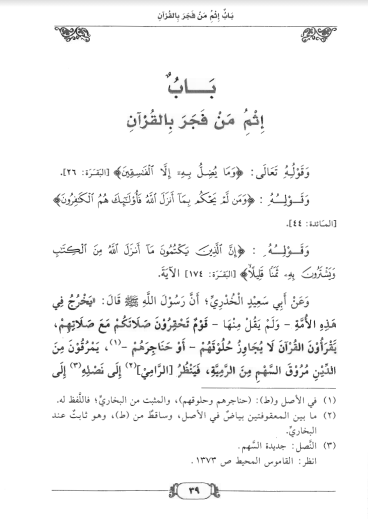 بَابُ إِثْمِ مَنْ فَجَرَ بِالقُرْآنِ
بَـــابُ
إِثْمِ مَنْ فَجَرَ بِالقُرْآنِ
وَقَوْلِهِ تَعَالَى: ﴿وَمَا يُضِلُّ بِهِۦٓ إِلَّا ٱلْفَٰسِقِينَ﴾ [البَقَرَة: ٢٦].
وَقَـوْلِـهِ: ﴿وَمَن لَّمْ يَحْكُم بِمَآ أَنزَلَ ٱللَّهُ فَأُو۟لَٰٓئِكَ هُمُ ٱلْكَٰفِرُونَ﴾
[المـَائدة: ٤٤].
وَقَـوْلِـهِ: ﴿إِنَّ ٱلَّذِينَ يَكْتُمُونَ مَآ أَنزَلَ ٱللَّهُ مِنَ ٱلْكِتَٰبِ
وَيَشْتَرُونَ بِهِۦ ثَمَنًا قَلِيلًا﴾ [البَقَرَة: ١٧٤] الآيَةَ.
وَعَنْ أَبِي سَعِيدٍ الخُدْرِيِّ؛ أَنَّ رَسُولَ اللَّهِ ﷺ قَالَ: «يَخْرُجُ فِي
هَذِهِ الأُمَّةِ - وَلَمْ يَقُلْ مِنْهَا - قَوْمٌ تَحْقِرُونَ صَلَاتَكُمْ مَعَ صَلَاتِهِمْ،
يَقْرَأُونَ القُرْآنَ لَا يُجَاوِزُ حُلُوقَهُمْ - أَوْ حَنَاجِرَهُمْ -(١)، يَمْرُقُونَ مِنَ
الدِّيْنِ مُرُوْقَ السَّهْمِ مِنَ الرَّمِيَّةِ، فَيَنْظُرُ [الرَّامِيْ](٢) إِلَى نَصْلِهِ(٣) إِلَى
(١) في الأصل و(ط): (حناجرهم وحلوقهم)، والمثبت من البخاري؛ فاللفظ له.
(٢) ما بين المعقوفتين بياضٌ في الأصل، وساقطٌ من (ط)، وهو ثابتٌ عند
البخاريِّ.
(٣) النَّصل: حديدة السَّهم.
انظر: القاموس المحيط ص ١٣٧٣.
٣٩